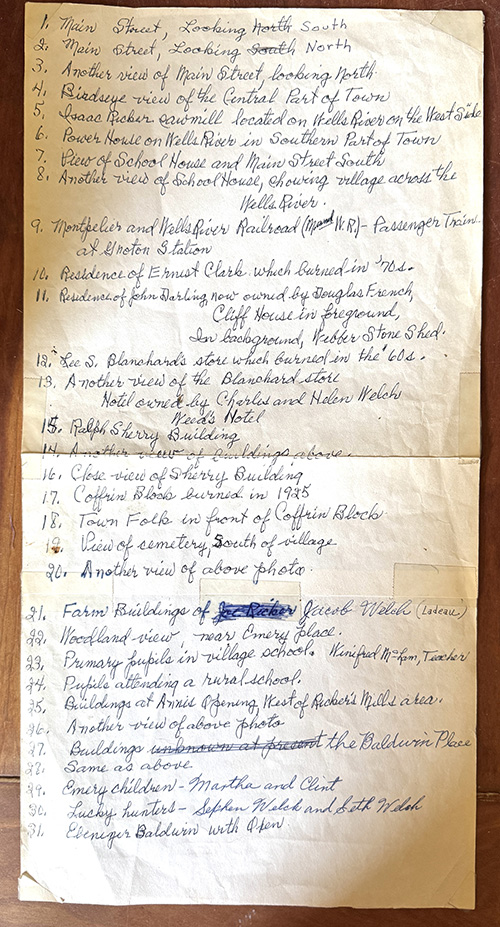 1. Main Street, Looking North South
2. Main Street, Looking South North
3. Another view of Main Street, looking North
4. Birdseye view of the Central Part of Town
5. Isaac Ricker sawmill located on Wells River on the West Side
6. Power House on Wells River in Southern Part of Town
7. View of School House and Main Street South
8. Another view of School House, showing village across the
Wells River.
9. Montpelier and Wells River Railroad (M and W.R.) - Passenger Train
at Groton Station
10. Residence of Ernest Clark which burned in '70s.
11. Residence of John Darling, now owned by Douglas French,
Cliff House in foreground,
In background, Webber Stone Shed.
12. Lee S. Blanchard's store which burned in the '60s.
13. Another view of the Blanchard store
Hotel owned by Charles and Helen Welch
Weed's Hotel
15. Ralph Sherry Building
14. Another view of buildings above.
16. Close view of Sherry Building
17. Coffrin Block burned in 1925
18. Town Folk in front of Coffrin Block
19. View of cemetery, South of village
20. Another view of above photo.
21. Farm Buildings of Joe Ricker Jacob Welch (Ladeau)
22. Woodland view near Emery place.
23. Primary pupils in village school. Winifred McLam, Teacher
24. Pupils attending a rural school.
25. Buildings at Annis Opening West of Ricker's Mills area.
26. Another view of above photo
27. Buildings unknown at present the Baldwin Place
28. Same as above.
29. Emery children - Martha and Clint
30. Lucky hunters - Sephen Welch and Seth Welch
31. Ebeniger Baldwin with Open.